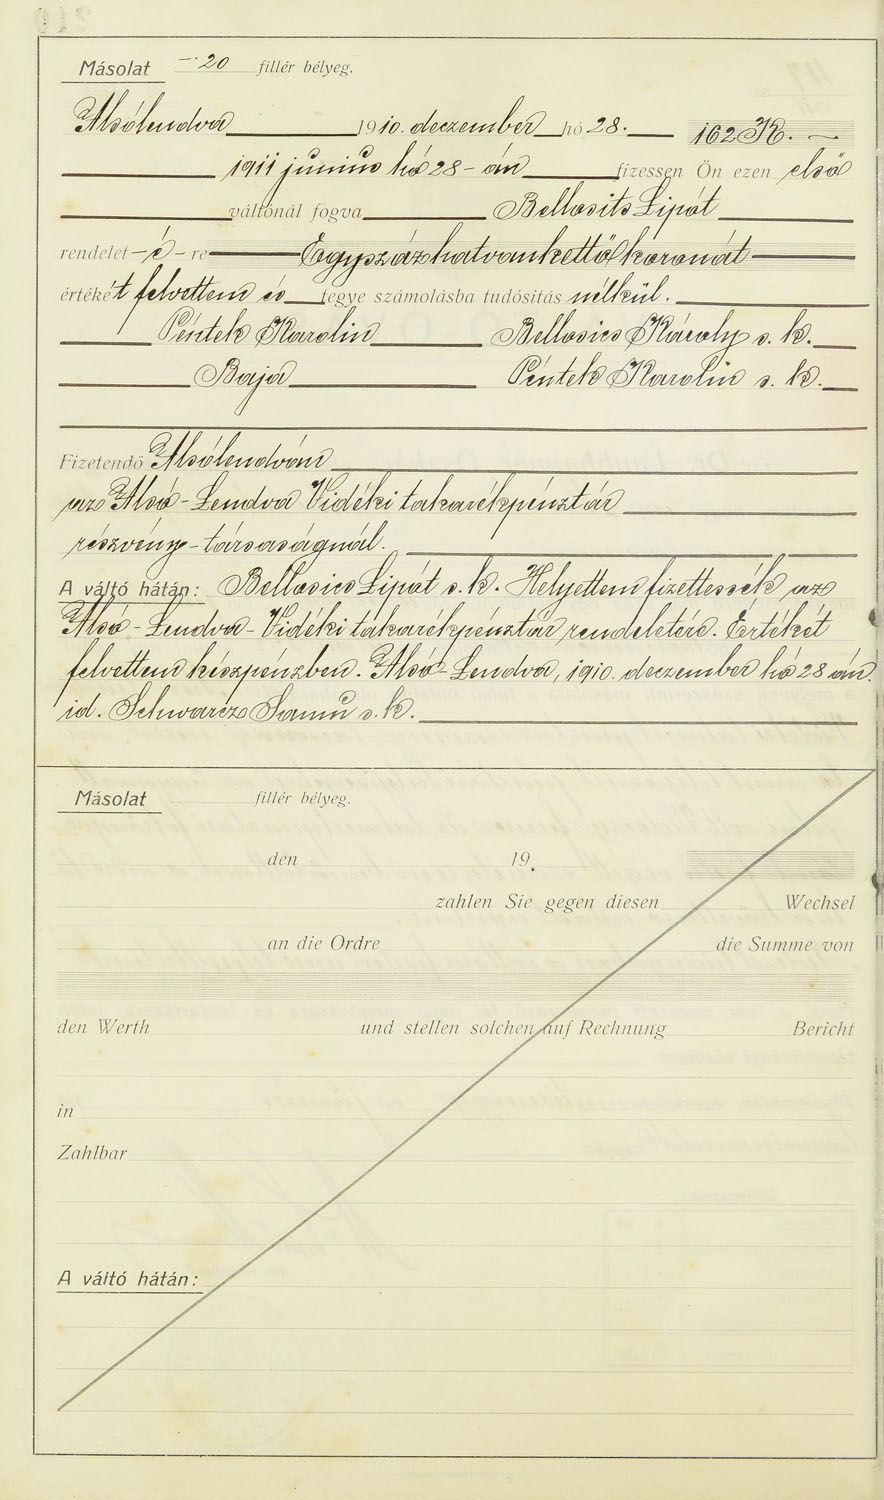 Másolat —·20 fillér bélyeg.
Alsólendva 1910. deczember hó 28. 162 K.
1911 június hó 28-án fizessen Ön ezen első
váltónál fogva Bellosits Lipót
rendelet-é-re Egyszázhatvankettő koronát
értékét felvettem és tegye számolásba tudósítás nélkül.
Péntek Karolin Bellosics Károly s. k.
Baja Péntek Karolin s. k.
Fizetendő Alsólendván
az Alsó-Lendva Vidéki takarékpénztár
részvény-társaságnál.
A váltó hátán: Bellosics Lipót s. k. Helyettem fizettessék az
Alsó-Lendva-Vidéki takarékpénztár rendeletére. Értékét
felvettem készpénzben. Alsó-Lendva, 1910. deczember hó 28 án.
id. Schwarcz Samu s. k.
Másolat fillér bélyeg.
den 19.
zahlen Sie gegen diesen Wechsel
an die Ordre die Summe von
den Werth und stellen solchen auf Rechnung Bericht
in
Zahlbar
A váltó hátán: